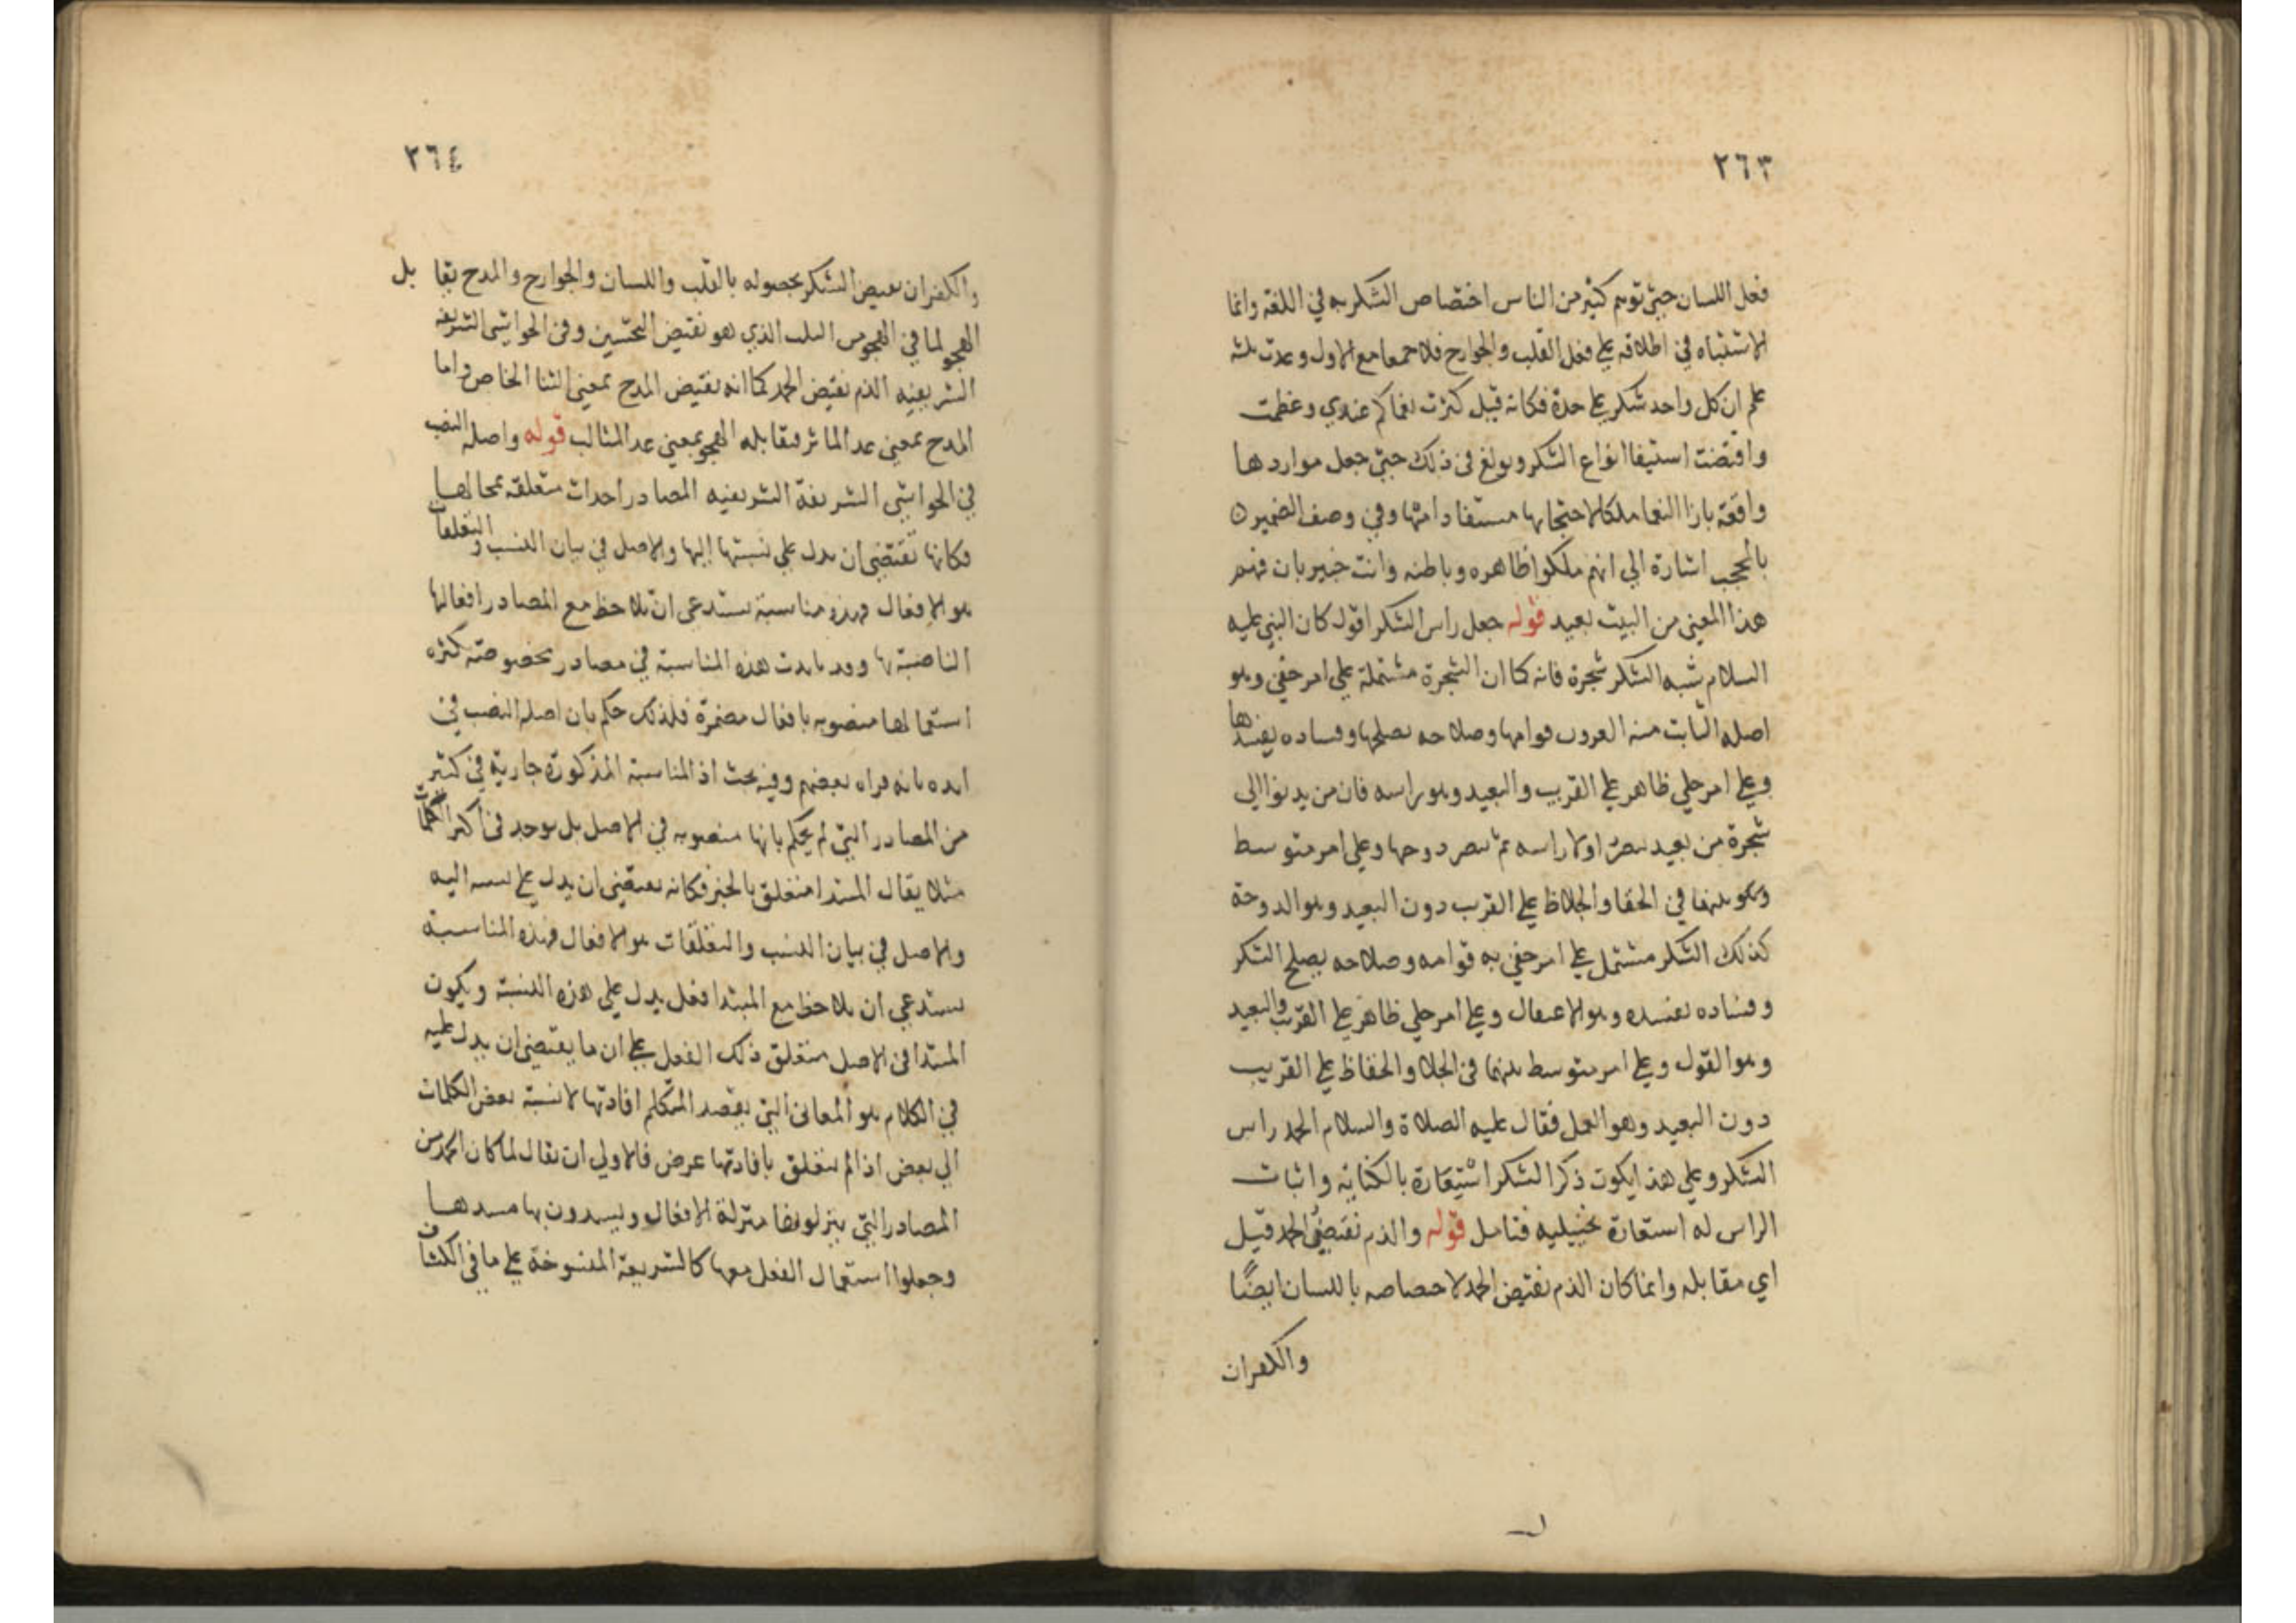 ٢٦٣
فعل اللسان حتى توهم كثير من الناس اختصاص الشكر به في اللغة وانما
الاشتباه في اطلاقه على فعل القلب والجوارح فلا جمعا مع الاول وعدت ثلثه
علم ان كل واحد شكر على حدة فكانه قيل كثرت نعماكم عندي وعظمت
واقتضت استيفا انواع الشكر وبولغ في ذلك حتى جعل مواردها
واقعة بازا النعما ملكا لاصحابها مستفادا منها وفي وصف الضمير
بالمحجب اشارة الي انهم ملكوا ظاهره وباطنه وانت خبير بان فهم
هذا المعنى من البيت بعيد قوله جعل راس الشكر اقول كان النبي عليه
السلام شبه الشكر شجرة فانه كما ان الشجرة مشتملة على امر خفي وهو
اصله الثابت منه العروق قوامها وصلاحه يصلحها وفساده يفسدها
وعلى امر جلي ظاهر على القريب والبعيد وهو راسه فان من يدنوا الى
شجرة من بعيد يبصر اولا راسه ثم يبصر دوحها وعلى امر متوسط
وهو بينهما في الخفا والجلاء على القرب دون البعيد وهو الدوحة
كذلك الشكر مشتمل على امر خفي به قوامه وصلاحه يصلح الشكر
وفساده يفسده وهو الاعتقاد وعلى امر جلي ظاهر على القريب والبعيد
وهو القول وعلى امر متوسط بينهما في الجلا والخفا على القريب
دون البعيد وهو العمل فقال عليه الصلاة والسلام الحمد راس
الشكر وعلى هذا يكون ذكر الشكر استعارة بالكناية واثبات
الراس له استعارة تخييلية فتامل قوله والذم نقيض الحمد قيل
اي مقابله وانما كان الذم نقيض الحمد لاختصاصه باللسان ايضًا
والكفران
٢٦٤
والكفران نقيض الشكر بحصوله بالقلب واللسان والجوارح والمدح يقابل
الهجو لما في الهجو من السلب الذي هو نقيض التحسين وفي الحواشي الشريفة
الشريفيه الذم نقيض الحمد كما انه نقيض المدح بمعنى الثنا الخاص واما
المدح بمعنى عد الماثر فيقابله الهجو بمعنى عد المثالب قوله واصله النصب
في الحواشي الشريفة الشريفيه المصادر احداث متعلقة بمحالها
فكانها تقتضي ان يدل على نسبتها اليها والاصل في بيان النسب والتعلقات
هو الافعال فهذه مناسبة تستدعي ان يلاحظ مع المصادر افعالها
الناصبة لها وقد تايدت هذه المناسبة في مصادر مخصوصة كثره
استعمالها منصوبه بافعال مضمرة فلذلك حكم بان اصله النصب في
ايده بانه قراه بعضهم وفيه بحث اذ المناسبة المذكورة جارية في كثير
من المصادر التي لم يحكم بانها منصوبه في الاصل بل يوجد في اكثر الكلمات
مثلا يقال المبتدا متعلق بالخبر فكانه يقتضي ان يدل على نسبه اليه
والاصل في بيان النسب والتعلقات هو الافعال فهذه المناسبة
تستدعي ان يلاحظ مع المبتدا فعل يدل على هذه النسبة ويكون
المبتدا في الاصل متعلق ذلك الفعل على ان ما يقتضي ان يدل عليه
في الكلام هو المعاني التي يقصد المتكلم افادتها لا نسبة بعض الكلمات
الي بعض اذا لم يتعلق بافادتها غرض فالاولي ان يقال لما كان الحمد من
المصادر التي ينزلونها منزلة الافعال ويسدون بها مسدها
وجعلوا استعمال الفعل معها كالشريعة المنسوخة على ما في الكشاف